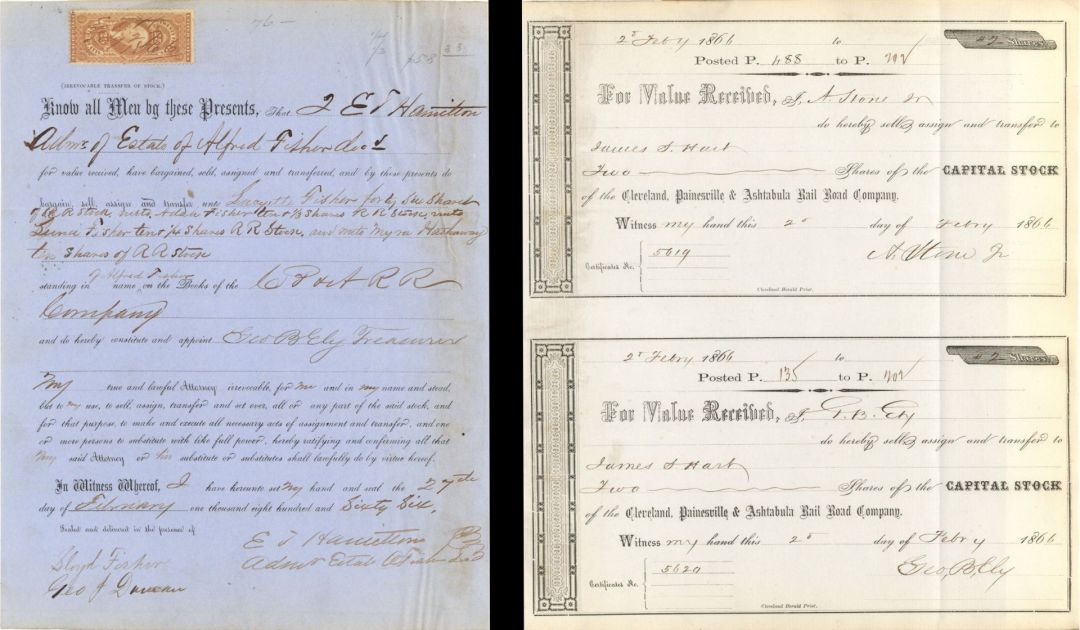 76-
1/4
1/3
(IRREVOCABLE TRANSFER OF STOCK.)
Know all Men by these Presents, That I E T Hamilton
Admr of Estate of Alfred Fisher decd
for value received, have bargained, sold, assigned and transferred, and by these presents do
bargain, sell, assign and transfer unto Lucretia Fisher forty six Shares
of R R Stock, unto Adam Fisher ten 1/3 Shares R R Stock, unto
Fisher ten 1/4 Shares R R Stock, and unto Myra Hathaway
ten Shares of R R Stock
of Alfred Fisher
standing in name on the Books of the C P & A R R
Company
and do hereby constitute and appoint Geo B Ely Treasurer
My true and lawful Attorney irrevocable, for me and in my name and stead,
but to my use, to sell, assign, transfer and set over, all or any part of the said stock, and
for that purpose, to make and execute all necessary acts of assignment and transfer, and one
or more persons to substitute with like full power, hereby ratifying and confirming all that
My said Attorney or his substitute or substitutes shall lawfully do by virtue hereof.
In Witness Whereof, I have hereunto set my hand and seal the
day of February one thousand eight hundred and Sixty Six,
Sealed and delivered in the presence of
E T Hamilton
Admr Estate A Fisher Decd
Lloyd Fisher
Geo J Duncan
25 Febry 1866 to 2 Shares
Posted P. 488 to P. 702
For Value Received, I, A. Stone Jr
do hereby sell, assign and transfer to
James S. Hart
Two Shares of the CAPITAL STOCK
of the Cleveland, Painesville & Ashtabula Rail Road Company.
Witness my hand this 25 day of Febry 1866
Certificates No. 5619
A. Stone Jr
Cleveland Herald Print.
25 Febry 1866 to 2 Shares
Posted P. 135 to P. 702
For Value Received, I, G. B. Ely
do hereby sell, assign and transfer to
James S Hart
Two Shares of the CAPITAL STOCK
of the Cleveland, Painesville & Ashtabula Rail Road Company.
Witness my hand this 25 day of Febry 1866
Certificates No. 5620
Geo, B, Ely
Cleveland Herald Print.